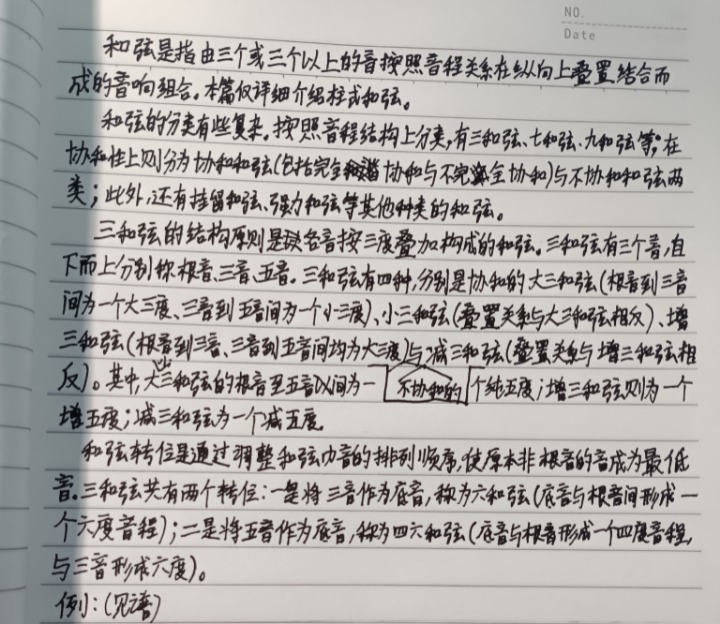 NO.
Date
和弦是指由三个或三个以上的音按照音程关系在纵向上叠置结合而
成的音响组合。本篇仅详细介绍柱式和弦。
和弦的分类有些复杂。按照音程结构上分类,有三和弦、七和弦、九和弦等;在
协和性上则分为协和和弦(包括完全协和与不完全协和)与不协和和弦两
类;此外,还有挂留和弦、强力和弦等其他种类的和弦。
三和弦的结构原则是各音按三度叠加构成的和弦。三和弦有三个音,自
下而上分别称根音、三音、五音。三和弦有四种,分别是协和的大三和弦(根音到三音
间为一个大三度、三音到五音间为一个小三度)、小三和弦(叠置关系与大三和弦相反)、增
三和弦(根音到三音、三音到五音间均为大三度)与减三和弦(叠置关系与增三和弦相
反)。其中,大小三和弦的根音至五音间为一个纯五度;增三和弦则为一个
不协和的
增五度;减三和弦为一个减五度。
和弦转位是通过调整和弦内音的排列顺序,使原本非根音的音成为最低
音。三和弦共有两个转位:一是将三音作为底音,称为六和弦(底音与根音间形成一
个六度音程);二是将五音作为底音,称为四六和弦(底音与根音形成一个四度音程,
与三音形成六度)。
例:(见谱)